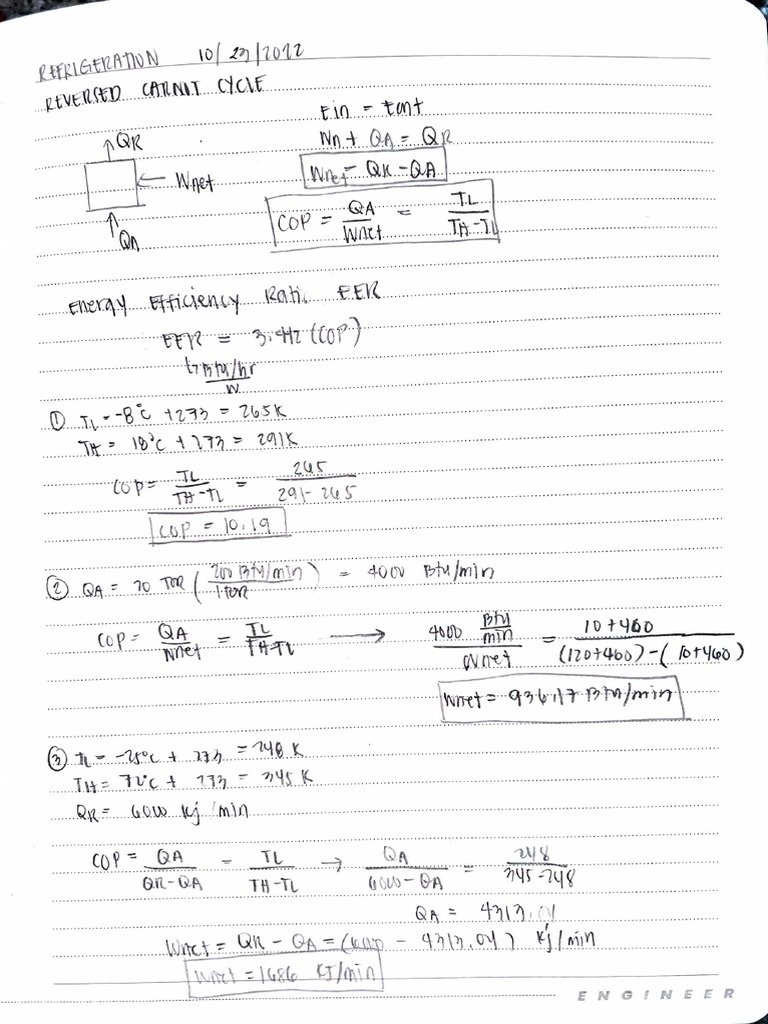 REFRIGERATION 10/23/2022
REVERSED CARNOT CYCLE
Ein = Eout
QR
Wn + QA = QR
Wnet
Wnet = QR - QA
QA
COP = QA/Wnet = TL/TH-TL
Energy Efficiency Ratio EER
EER = 3.412 (COP)
↳ Btu/hr / W
① TL = -8°C + 273 = 265K
TH = 18°C + 273 = 291K
COP = TL/TH-TL = 265/291-265
COP = 10.19
② QA = 20 TOR (200 Btu/min / 1 TOR) = 4000 Btu/min
COP = QA/Wnet = TL/TH-TL → 4000 Btu/min / Wnet = 10+460/(120+460)-(10+460)
Wnet = 936.17 Btu/min
③ TL = -25°C + 273 = 248 K
TH = 72°C + 273 = 345 K
QR = 6000 kj/min
COP = QA/QR-QA = TL/TH-TL → QA/6000-QA = 248/345-248
QA = 4313.04
Wnet = QR - QA = (6000 - 4313.04) kj/min
Wnet = 1686 KJ/min
ENGINEER